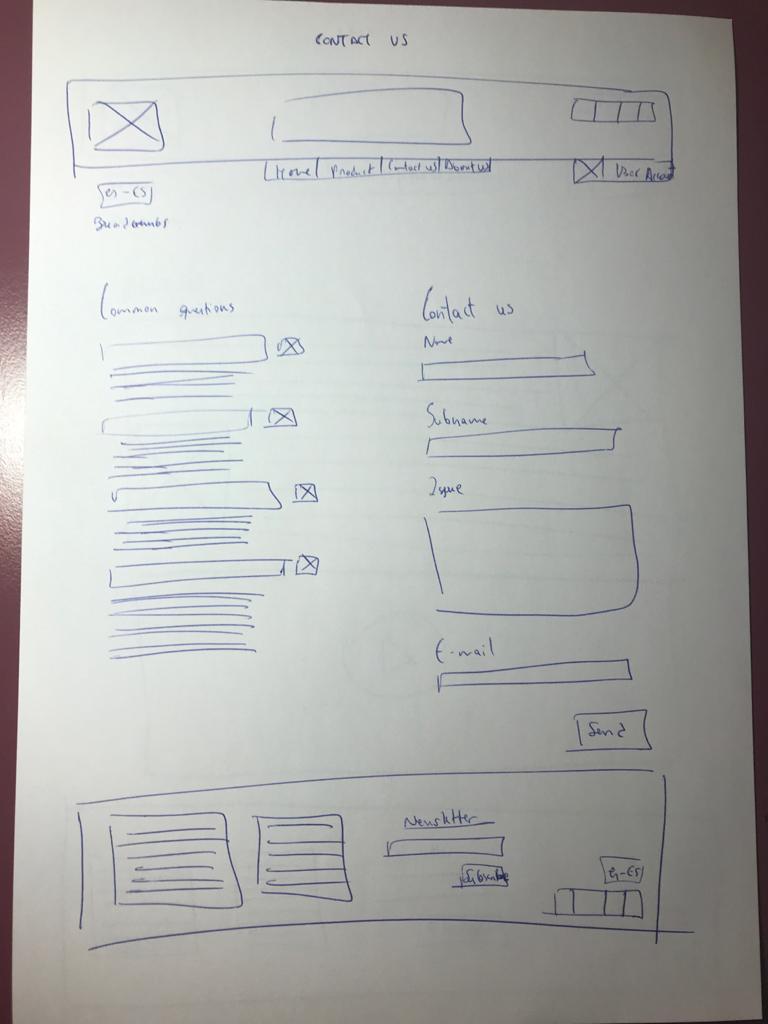 CONTACT US
Home Product Contact us About us
User Account
en-ES
Breadcrumbs
Common questions
Contact us
Name
Subname
Issue
E-mail
Send
Newsletter
Subscribe
en-ES